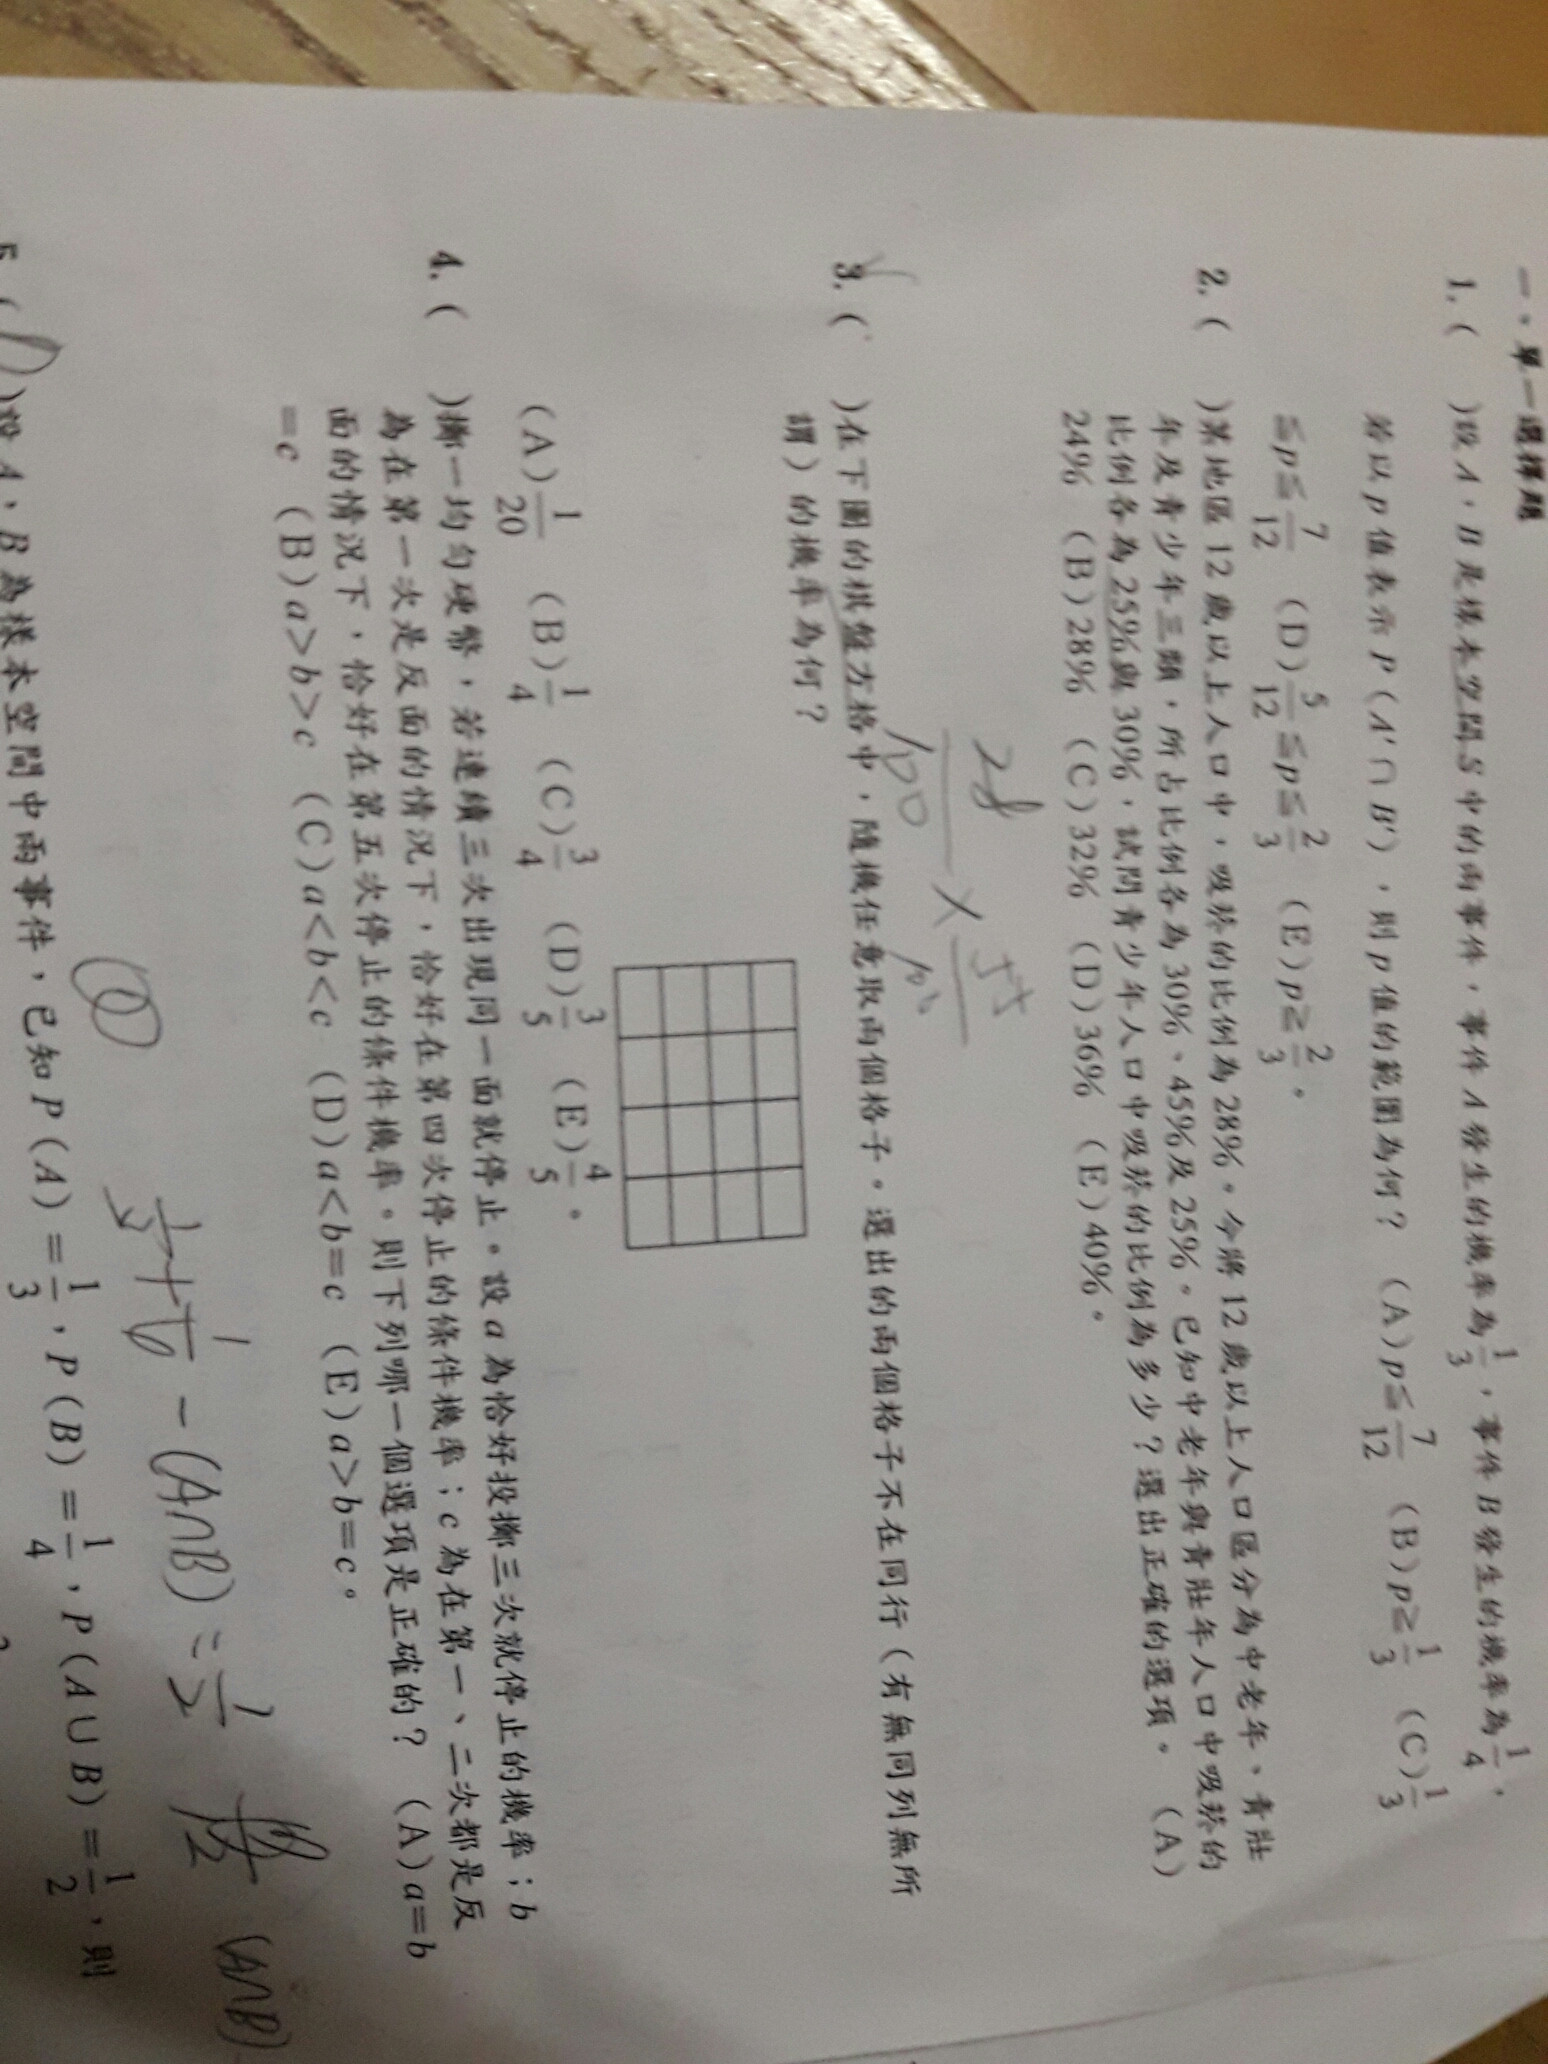 一、單一選擇題
1. (　　)設 A，B 是樣本空間 S 中的兩事件，事件 A 發生的機率為 1/3，事件 B 發生的機率為 1/4，
若以 p 值表示 P（A'∩B'），則 p 值的範圍為何？ (A) p≦7/12 (B) p≧1/3 (C) 1/3
≦p≦7/12 (D) 5/12≦p≦2/3 (E) p≧2/3。
2. (　　)某地區 12 歲以上人口中，吸菸的比例為 28%。今將 12 歲以上人口區分為中老年、青壯
年及青少年三類，所占比例各為 30%、45%及 25%。已知中老年與青壯年人口中吸菸的
比例各為 25%與 30%，試問青少年人口中吸菸的比例為多少？選出正確的選項。 (A)
24% (B) 28% (C) 32% (D) 36% (E) 40%。
28/100 × 25/100
3. (　　)在下圖的棋盤方格中，隨機任意取兩個格子。選出的兩個格子不在同行（有無同列無所
謂）的機率為何？
(A) 1/20 (B) 1/4 (C) 3/4 (D) 3/5 (E) 4/5。
4. (　　)擲一均勻硬幣，若連續三次出現同一面就停止。設 a 為恰好投擲三次就停止的機率；b
為在第一次是反面的情況下，恰好在第四次停止的條件機率；c 為在第一、二次都是反
面的情況下，恰好在第五次停止的條件機率。則下列哪一個選項是正確的？ (A) a＝b
＝c (B) a＞b＞c (C) a＜b＜c (D) a＜b＝c (E) a＞b＝c。
－(A∩B)＝1/2
(A∩B)
5. (　　)設 A，B 為樣本空間中兩事件，已知 P（A）＝1/3，P（B）＝1/4，P（A∪B）＝1/2，則